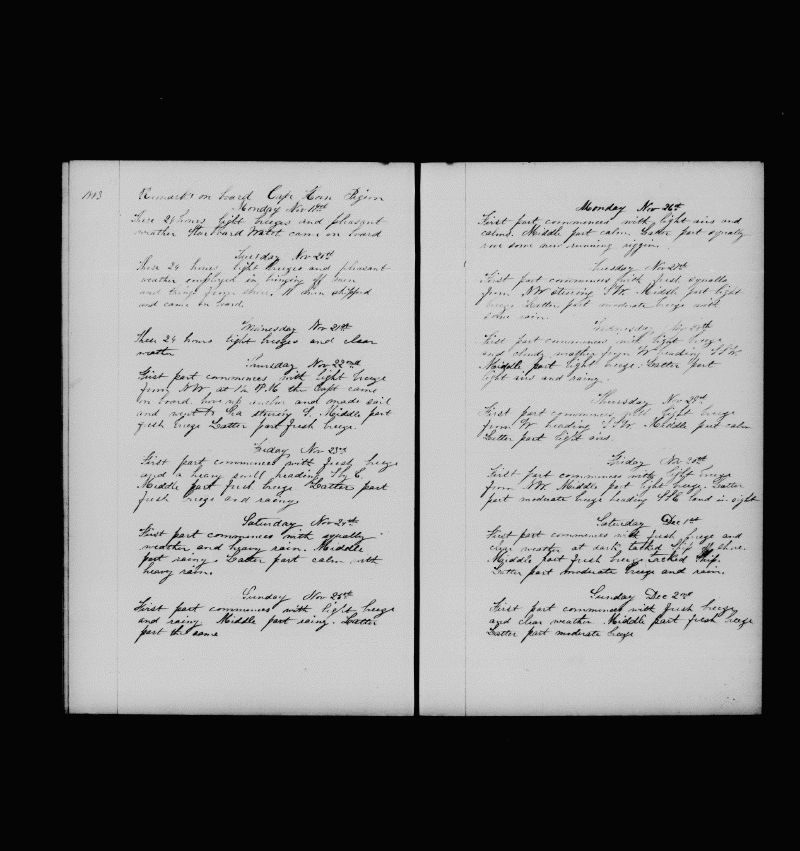 Remarks on board Cape Horn Pigeon
Monday Nov 19th
These 24 hours light breezes and pleasant
weather Starboard Watch came on board
Tuesday Nov 20th
These 24 hours light breezes and pleasant
weather employed in bringing off
and things from shore. 11 men shipped
and came on board.
Wednesday Nov 21st
These 24 hours light breezes and clear
weather
Thursday Nov 22nd
First part commences with light breeze
from NW at P.M the Capt came
on board. hove up anchor and made sail
and went to Sea steering S. Middle part
fresh breeze Latter part fresh breeze.
Friday Nov 23rd
First part commences with fresh breeze
and a heavy swell heading S by E.
Middle part fresh breeze Latter part
fresh breeze and rainy
Saturday Nov 24th
First part commences with squally
weather and heavy rain. Middle
part rainy. Latter part calm with
heavy rain.
Sunday Nov 25th
First part commences with light breeze
and rainy Middle part rainy. Latter
part the same
Monday Nov 26th
First part commences with light airs and
calms. Middle part calm. Latter part squally
some new running rigging.
Tuesday Nov 27th
First part commences with fresh squalls
from NW steering SW. Middle part light
breeze Latter part moderate breeze with
some rain.
Wednesday Nov 28th
First part commences with light breeze
and cloudy weather from W heading SSW.
Middle part light breeze. Latter part
light airs and rainy.
Thursday Nov 29th
First part commences with light breeze
from W heading SSW. Middle part calm
Latter part light airs.
Friday Nov 30th
First part commences with light breeze
from NW Middle part light breeze. Latter
part moderate breeze heading land in sight
Saturday Dec 1st
First part commences with fresh breeze and
clear weather at dark tacked Ship off shore.
Middle part fresh breeze tacked Ship.
Latter part moderate breeze and rain.
Sunday Dec 2nd
First part commences with fresh breeze
and clear weather Middle part fresh breeze
Latter part moderate breeze